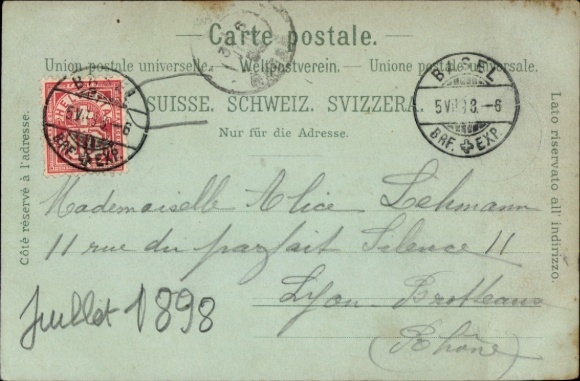 Carte postale.
Union postale universelle. — Weltpostverein. — Unione postale universale.
SUISSE. SCHWEIZ. SVIZZERA.
Nur für die Adresse.
Côté réservé à l'adresse.
Lato riservato all' indirizzo.
BASEL
5 VII 98. – 6
BRF. EXP.
HELVETIA
BASEL
5 VII
6
BRF. EXP.
Mademoiselle Alice Lehmann
11 rue du parfait Silence 11
Lyon-Brotteaux
(Rhône)
Juillet 1898